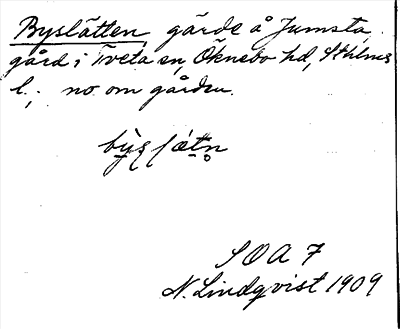 Byslätten, gärde å Jumsta
gård i Tveta sn, Öknebo hd, Sthlms
l.; no om gården.
SOA 7
N. Lindqvist 1909